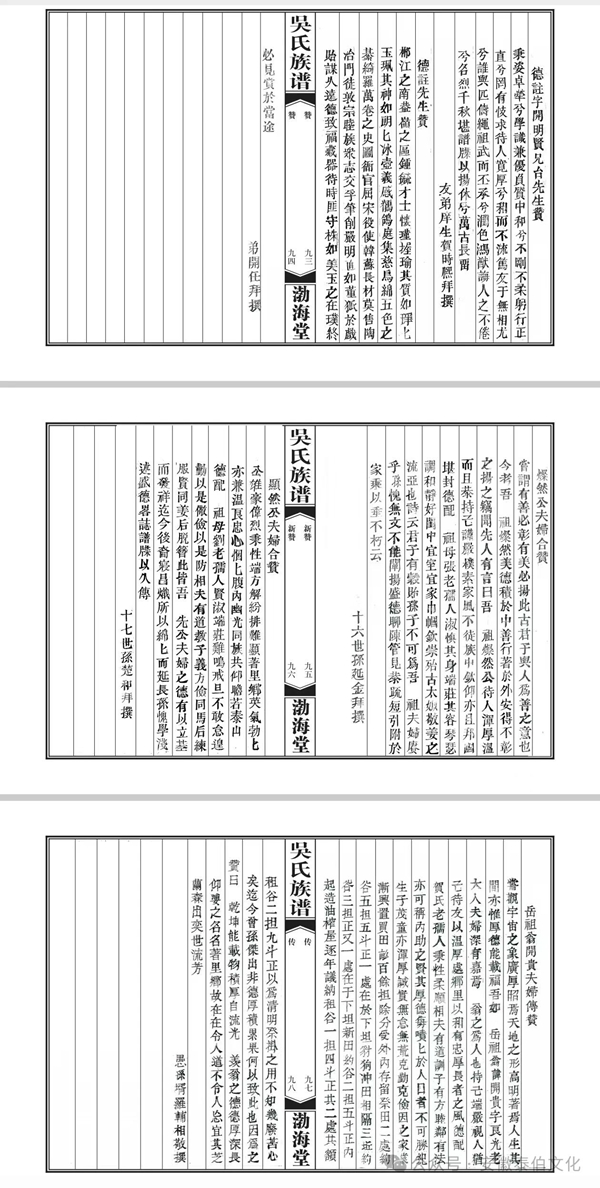 德註字開明賢兄台先生贊
秉姿卓犖兮學識兼優負質中和兮不剛不柔躬行正
直兮罔有忮求待人寬厚兮和而不流舊友于無相尤
兮誰與匹儔繩祖武而丕承兮潤色鴻猷誨人之不倦
兮名烈千秋堪譜牒以揚休兮萬古長留
友弟庠生賀時熙拜撰
德註先生贊
郴江之南嶺之區鍾毓才士懷瑾握瑜其質如琢
玉珮其神如明冰壺義感鴒庭集慈烏綿五色之
綦綺羅萬卷之史圖衙官屈宋役使韓蘇長材莫售陶
冶門徒敦宗睦族眾志交孚筆削嚴明直如董狐於戲
貽謀久遠德致福載器待時匪守株如美玉之在璞終
吳氏族谱
贊
贊
九三
九四
渤海堂
必見賞於當途
弟開任拜撰
燦然公夫婦合贊
嘗謂有善必彰有美必揚此古君子與人為善之意也
今者吾 祖燦然美德積於中善行著於外安得不彰
之揚之竊聞先人有言曰吾 祖燦然公待人渾厚溫
而且恭持己謹嚴樸素家風不徒族中欽仰亦且邦國
堪封德配 祖母張老孺人淑慎其身端莊其容琴瑟
調和靜好閨中宜室宜家巾幗欽崇殆古太姒敬姜之
流亞也詩云君子有穀貽孫子不可為吾 祖夫婦慶
乎孫愧無文不能闡揚盛德聊陳管見恭疏短引附於
家乘以垂不朽云
十六世孫延金拜撰
吳氏族谱
新贊
新贊
九五
九六
渤海堂
顯然公夫婦合贊
公雄豪偉烈秉性端方解紛排難顯著里鄉英氣勃
亦兼溫良忠心悃腹內幽光同族共仰瞻若泰山
德配 祖母劉老孺人賢淑端莊雞鳴戒旦不敢怠遑
勤以是儆儉以是防相夫有道教子義方儉同馬后練
服賢同姜后脫簪此皆吾 先公夫婦之德有以立基
而發祥迄今後裔寖昌熾所以綿而延長孫愧學淺
述盛德畧誌譜牒以久傳
十七世孫楚和拜撰
岳祖翁開貴夫婦傳贊
嘗觀宇宙之象廣厚昭焉天地之形高明著焉人生其
間亦惟厚德能載福吾如 岳祖翁諱開貴字良光老
大人夫婦深有嘉焉 翁之為人也持己端嚴視人猶
己待友以溫厚處鄉里以和有忠厚長者之風德配
賀氏老孺人秉性柔順相夫有道訓子有方聯鄰有法
亦可稱內助之賢其厚德嘖於人口者不可勝紀
生子茂童亦渾厚誠實無怠無荒克勤克儉因之家業
漸興置買田畝百餘担除分受外內存留祭田二處約
谷五担五斗正一處在於下坦狗沖田相隔三垢約
谷三担正又一處在于下坦新田約谷二担五斗正內
起造油榨屋逐年議納租谷一担四斗正共二處共額
吳氏族谱
传
传
九七
九八
渤海堂
租谷二担九斗正以為清明祭掃之用不知幾勞苦心
矣迄今曾孫傑出非德厚積果果何以致此也因為之
贊曰 乾坤能載物積厚自流光 羨翁之德德厚深長
仰嬰之名名著里鄉故在在令人道不令人忘宜其芝
蘭森出奕世流芳
思孫壻羅輔相敬撰
公众号 · 安徽泰伯文化